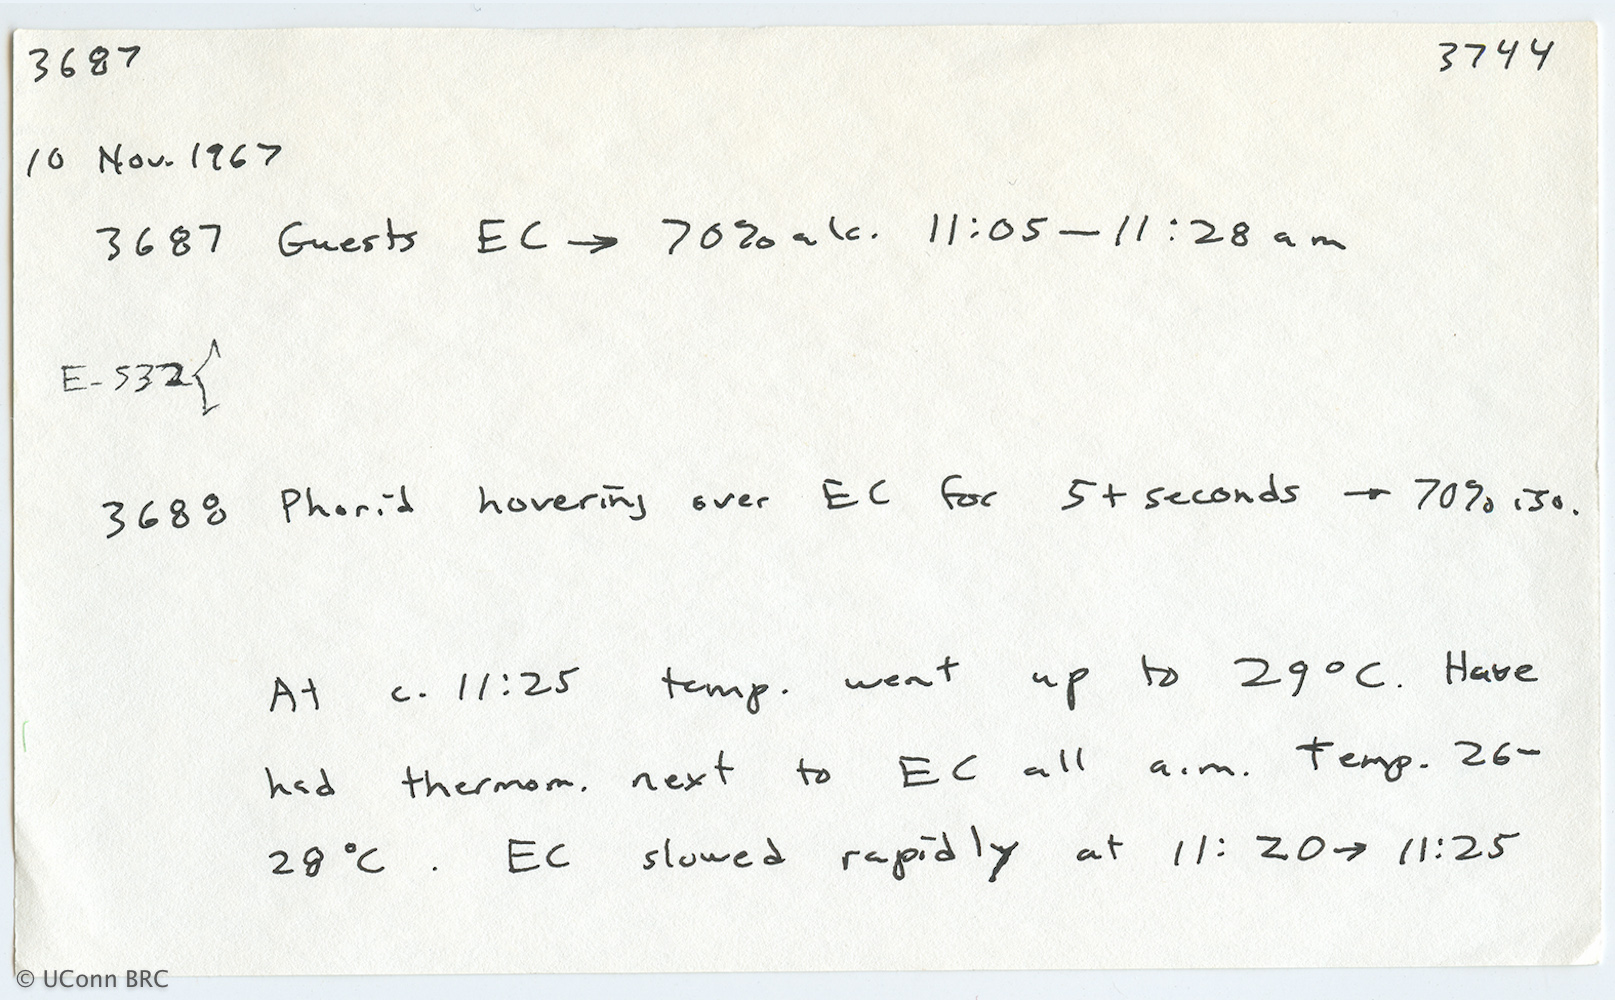 3687 3744
10 Nov. 1967
3687 Guests EC → 70% alc. 11:05 — 11:28 am
E-532{
3688 Phorid hovering over EC for 5+ seconds → 70% iso.
At c. 11:25 temp. went up to 29°C. Have
had thermom. next to EC all a.m. Temp. 26-
28°C. EC slowed rapidly at 11:20 → 11:25
© UConn BRC